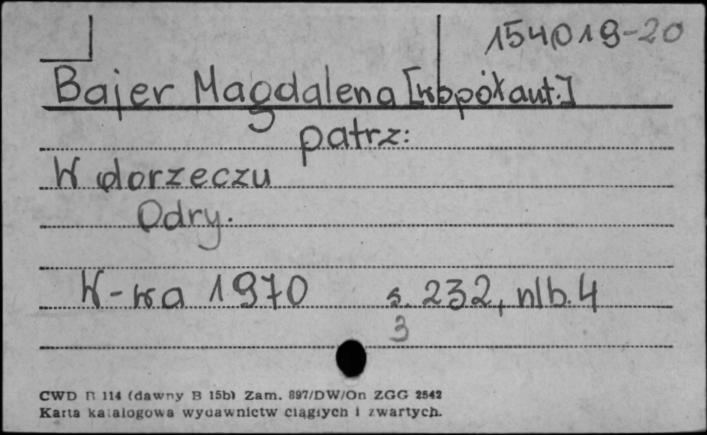 154019-20
Bajer Magdalena [współaut.]
patrz:
W dorzeczu
Odry.
W-wa 1970 s. 232, nlb. 4
3
CWD B 114 (dawny B 15b) Zam. 897/DW/On ZGG 2542
Karta katalogowa wydawnictw ciągłych i zwartych.